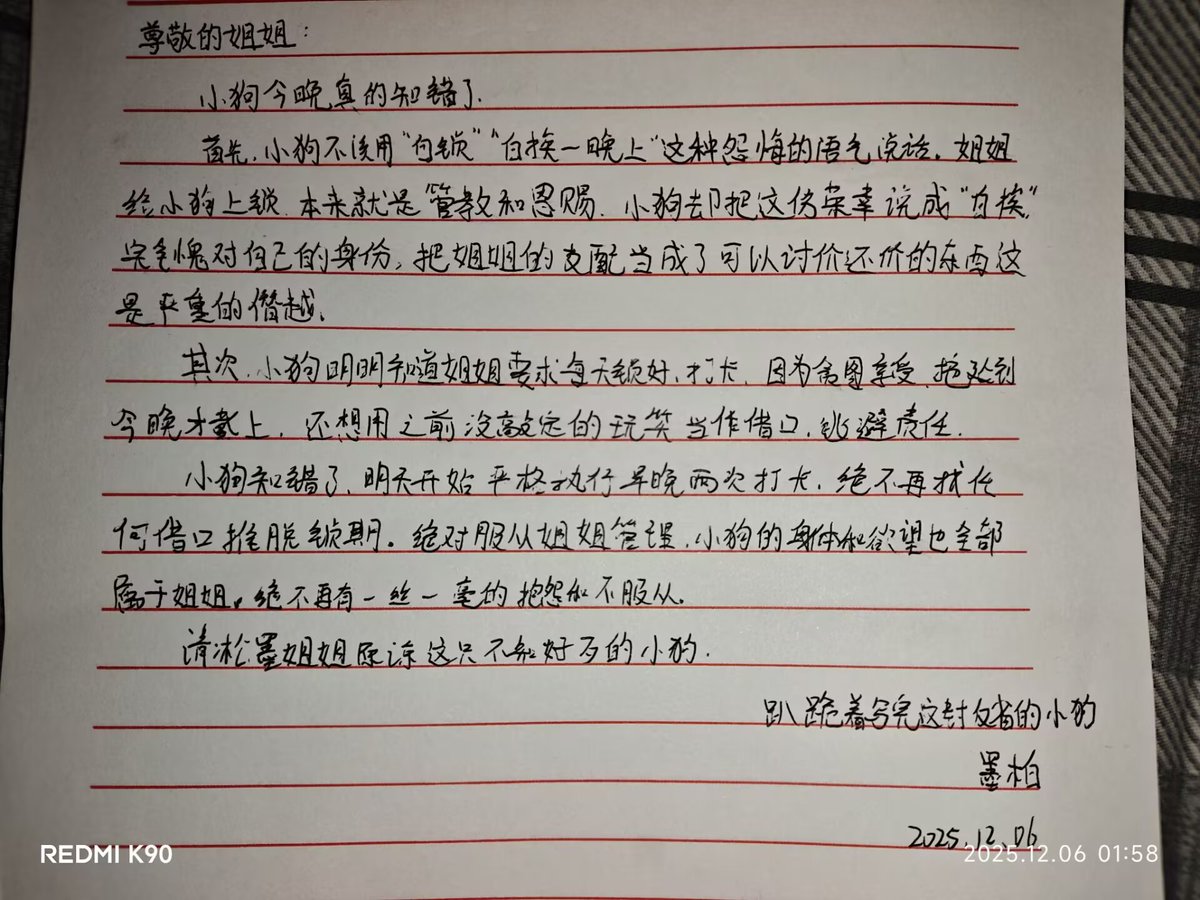 尊敬的姐姐：
小狗今晚真的知错了.
首先,小狗不该用“白锁”“白挨一晚上”这种怨悔的语气说话.姐姐
给小狗上锁.本来就是管教和恩赐.小狗却把这份荣幸说成“白挨”
完全愧对自己的身份,把姐姐的支配当成了可以讨价还价的东西这
是严重的僭越.
其次.小狗明明知道姐姐要求每天锁好.打卡.因为贪图享受.拖延到
今晚才戴上.还想用之前没敲定的玩笑当作借口,逃避责任.
小狗知错了.明天开始严格执行早晚两次打卡.绝不再找任
何借口推脱锁期。绝对服从姐姐管理.小狗的身体和欲望也全部
属于姐姐。绝不再有一丝一毫的抱怨和不服从.
请淞墨姐姐原谅这只不知好歹的小狗.
趴跪着写完这封反省的小狗
墨柏
2025.12.06
REDMI K90
2025.12.06 01:58